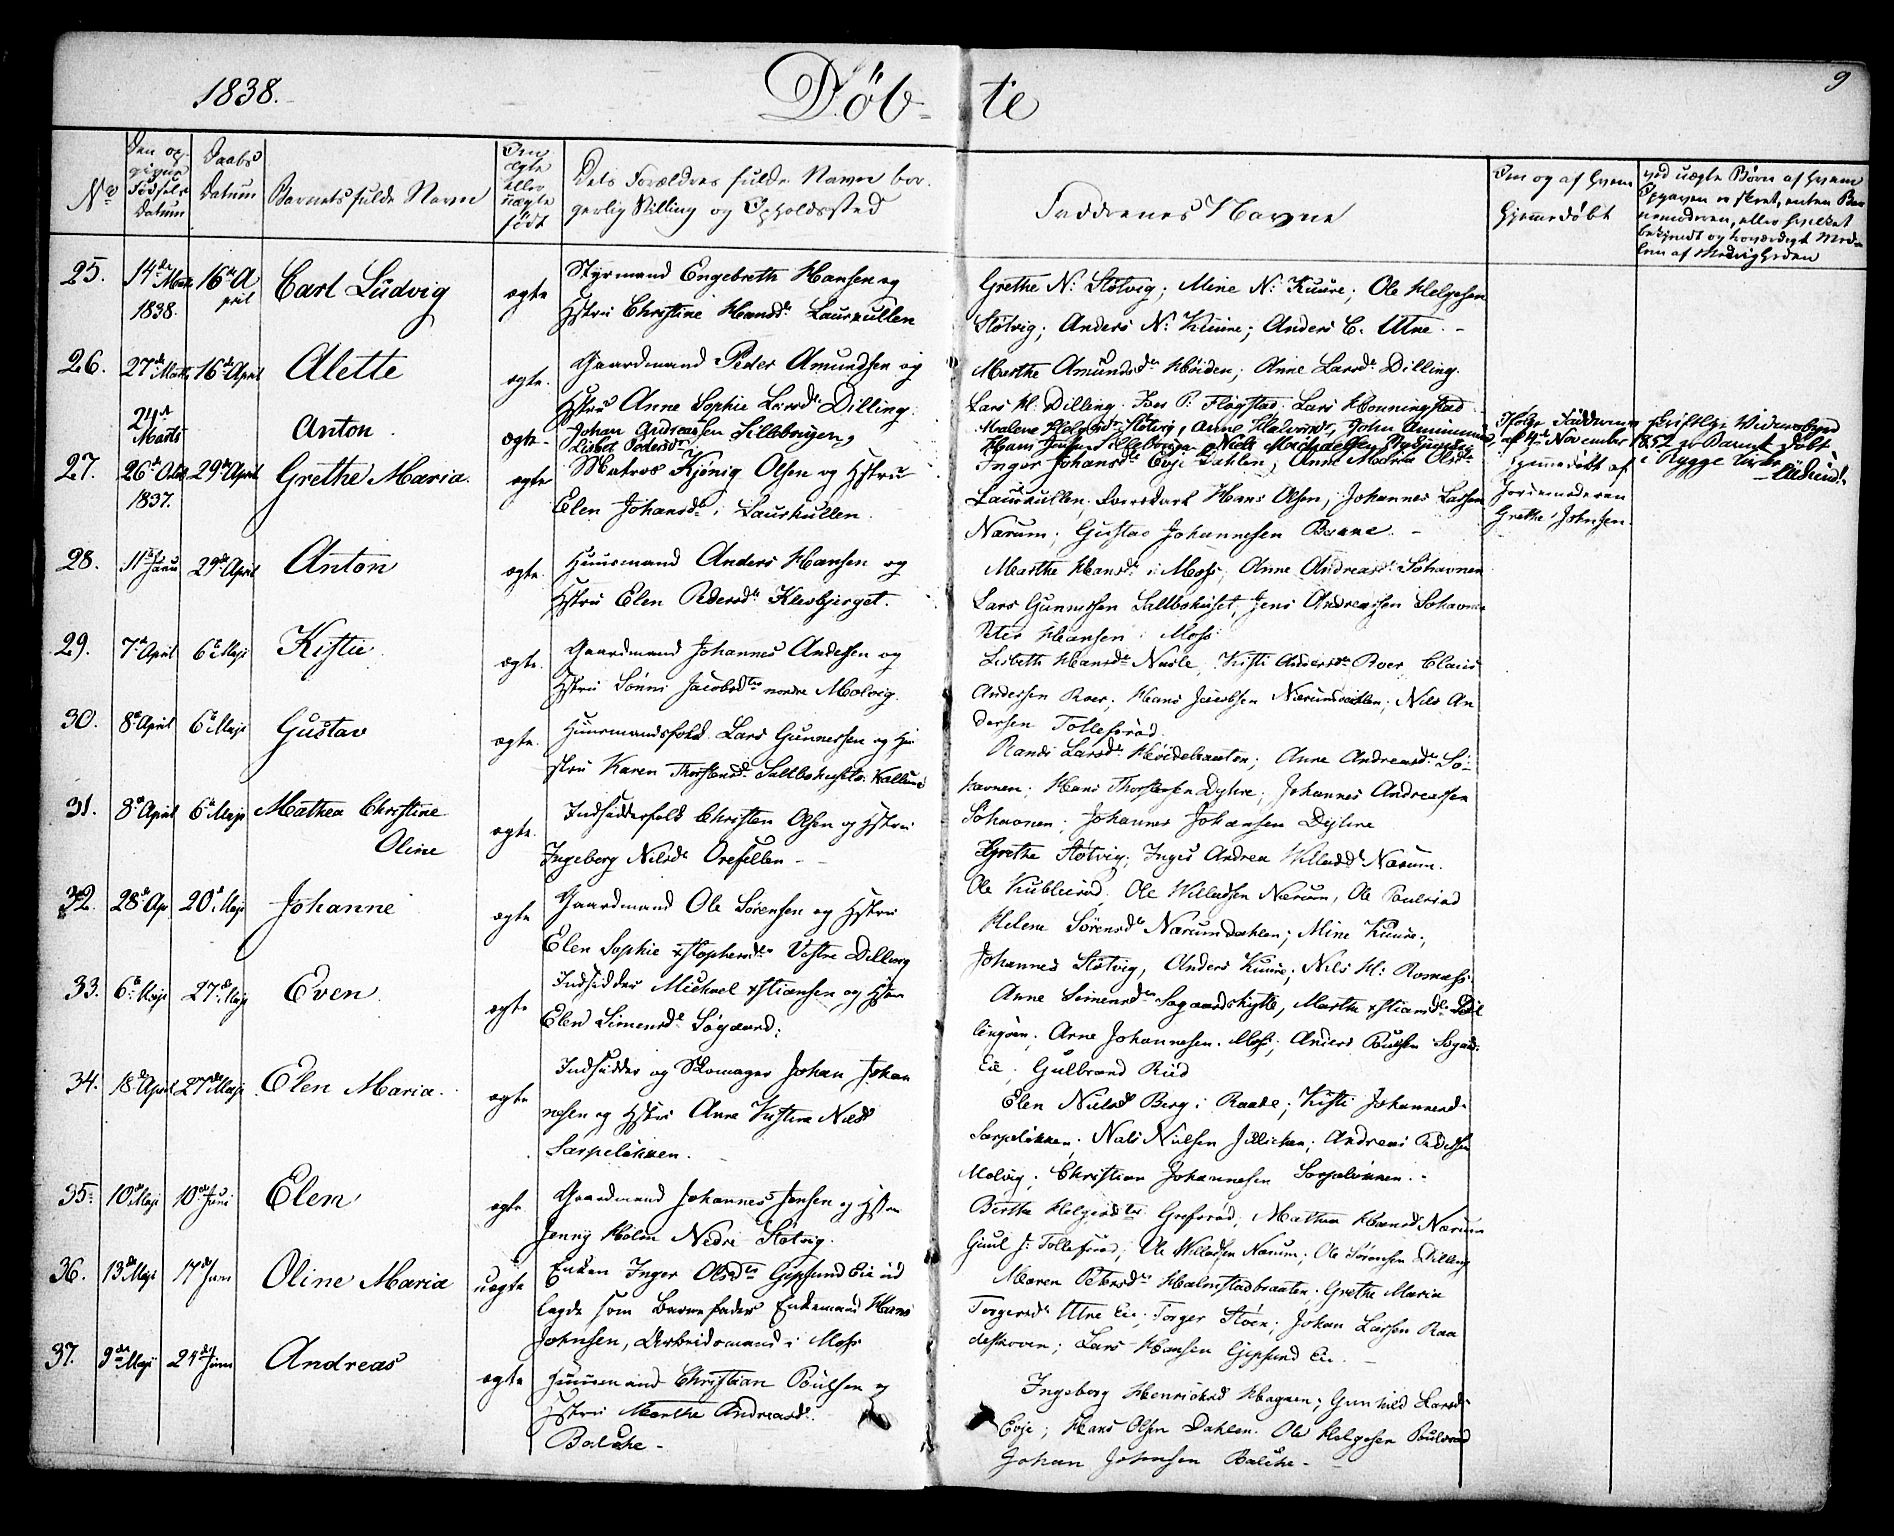 1838.
Döb-te
9
No
Den op-
given
Födsels
Datum
Daabs
Datum
Barnets fulde Navn
Om
ægte
eller
uægte
födt
Dets Forældres fulde Navn bor-
gerlig Stilling og Opholdssted
Faddrenes Navne
Om og af hvem
hjemmedöbt
ved uægte Börn af hvem
Opgaven er skeet, enten Bar-
nemoderen, eller hvilket
bekjendt og troværdigt Med-
lem af Menigheden
25.
14de Marts
1838.
16de A
pril
Carl Ludvig
ægte
Styrmand Engebreth Hansen og
Hstru Christine Hansd. Laurkullen
Grethe N: Stötvig; Mine N: Kuure; Ole Helgesen
Stötvig; Anders N: Kuure; Anders C. Utne. -
26.
27de Marts
16de April
Alette
ægte.
Gaardmand Peder Amundsen og
Hstru Anne Sophie Larsd. Dilling.
Marthe Amundsdr Höiden; Anne Larsdr Dilling.
Lars H: Dilling. Iver P: Flogstad. Lars Honningstad
24de
Marts
Anton
ægte-
Johan Andreassen Silleborgen,
Lisbet Pedersdr
Malene Helgesdr Stötvig, Anne Halvorsdr, John
Hans Jensen Silleborgen Niels Michaelsen
Ifölge Faddernes skriftlige Vidnesbyrd
af 4de November 1852 er Barnet döbt
i Rygge Kirke
27.
26de Octbr
1837.
29de April
Grethe Maria.
ægte
Matros Kjönig Olsen og Hstru
Elen Johansdr i Laurkullen.
Inger Johansdr Evje Dahlen; Anne Maria Olsdr
Laurkullen. Hans Olsen; Johannes Larsen
Nærum; Gustav Johannesen Brene. -
Hjemmedöbt af
Jordemoderen
Grethe Johnsen.
28.
11te Janu
29de April
Anton
ægte.
Huusmand Anders Hansen og
Hstru Elen Pedersdr Klevbjerget.
Marthe Hansdr i Moss; Anne Andreasdr Söhavnen
Lars Gunnersen Saltbohuset; Jens Andreassen Söhavnen
Peter Hansen i Moss
29.
7de April
6te Maji
Kistie
ægte.
Gaardmand Johannes Andersen og
Hstru Sönni Jacobsdtr nordre Molvig.
Lisbeth Hansdr Nærle, Kisti Andersdr Roer Claus
Andersen Roer; Hans Jacobsen Nærumsdahlen; Nils An
dersen Tollefsröd
30.
8de April
6te Maji
Gustav
ægte.
Huusmandsfolk Lars Gunnersen og Hu
stru Karen Thorstensdr Saltbohuset
Randi Larsdr Höidebraaten; Anne Andreasdr Sö-
havnen; Hans Thorstensen Dyhre; Johannes Andreassen
Söhavnen; Johannes Johansen Dyhre
31.
8de April
6te Maji
Mathea Christine
Oline
ægte.
Indsidderfolk Christen Olsen og Hstru
Ingeborg Nilsdr Orefellen -
Grethe Stötvig; Inger Andrea Willadsdr Nærum.
Ole Kubberöd, Ole Willadsen Nærum, Ole Poulsröd
32.
28de Ap
20de Maji
Johanne
ægte
Gaardmand Ole Sörensen og Hstru
Elen Sophie xstophersdr Vestre Dilling
Helene Sörensdr Nærumdahlen; Mine Kuure;
Johannes Stötvig, Anders Kuure; Nils H:
33.
6te Maji
27de Maji
Even
ægte
Indsidder Michael xstiansen og Hstru
Elen Simensdr Sögaard:
Anne Simensdr Sogaardshytte, Marthe xstiansdr Dil
lingöen; Arne Johannesen. Moss; Anders Poulsen Sögaard
Eie; Gulbrand Ruud
34.
18de April
27de Maji
Elen Maria.
ægte
Indsidder og Skomager Johan Johan
nesen og Hstru Anne Kistine Nilsd
Sarpelökken.
Elen Nielsdr Berg i Raade; Kisti Johannesdr
Sarpelökken. Nils Nielsen Jellichen; Andreas Pedersen
Molvig; Christian Johannesen Sarpelökken. -
35.
10de Maji
10de Juni
Elen
ægte
Gaardmand Johannes Jensen og Hstru
Jenny Holm Nedre Stötvig.
Berthe Helgesdtr Grefsröd; Mathea Hansd Nærum
Guul J: Tollefsröd; Ole Willadsen Nærum; Ole Sörensen Dilling
36.
13de Maji
17de Juni
Oline Maria
uægte
Enken Inger Olsdtr Gipsund Eie ud
lagde som Barnefader Enkemand Hans
Johnsen, Arbeidsmand i Moss
Maren Petersdr Halmstadbraaten. Grethe Maria
Torgersdr Utne Eie; Torger Stöen; Johan Larsen Raa
deskoven; Lars Hansen Gipsund Eie. -
37.
9de Maji
24de Juni
Andreas
ægte
Huusmand Christian Poulsen og
Hstru Marthe Andreasdr.
Balche -
Ingeborg Henriksd Hagaen; Gunhild Larsdr
Evje; Hans Olsen Dahlen. Ole Helgesen Poulsröd
Johan Johnsen Balche -